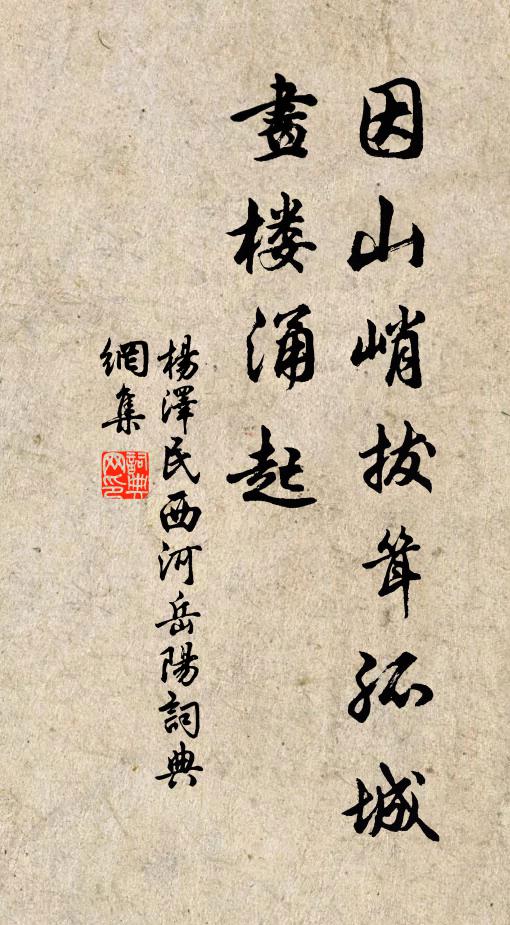 因山峭拔聳孤城
畫楼涌起
楊澤民西河岳陽詞典
網集
詞典
网印